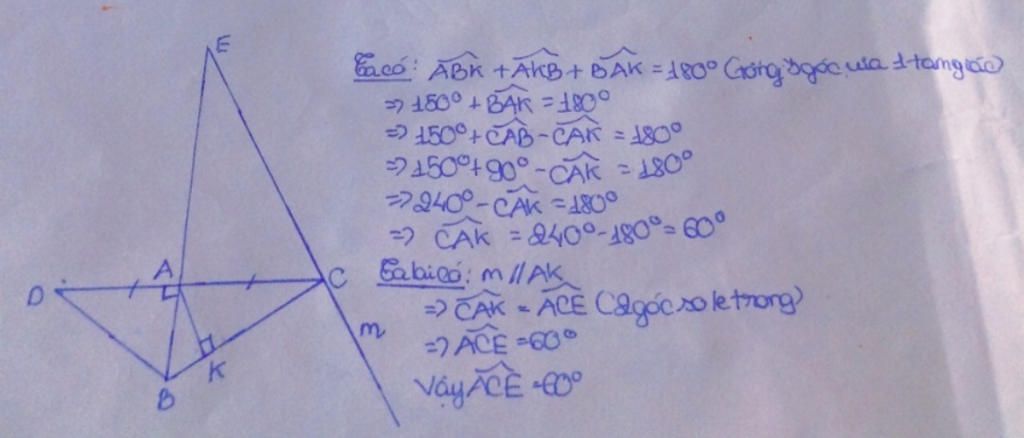 E
Ta có: ABK + AKB + BAK = 180° (tổng 3 góc của 1 tam giác)
=> 150° + BAK = 180°
=> 150° + CAB - CAK = 180°
=> 150° + 90° - CAK = 180°
=> 240° - CAK = 180°
=> CAK = 240° - 180° = 60°
D A C
Ta lại có: m // AK
=> CAK = ACE (2 góc so le trong)
m
=> ACE = 60°
K
Vậy ACE = 60°
B